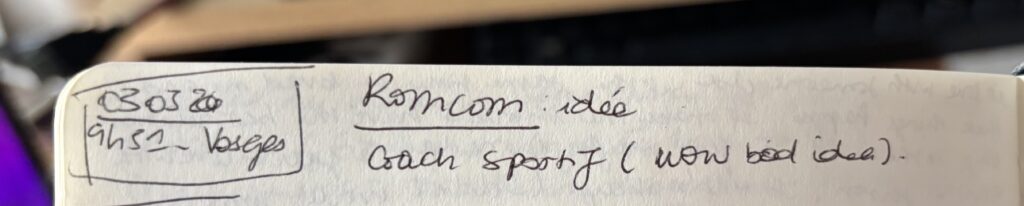 030320
9h51_ Vosges
Romcom : idée
Coach sportif (now bad idea).